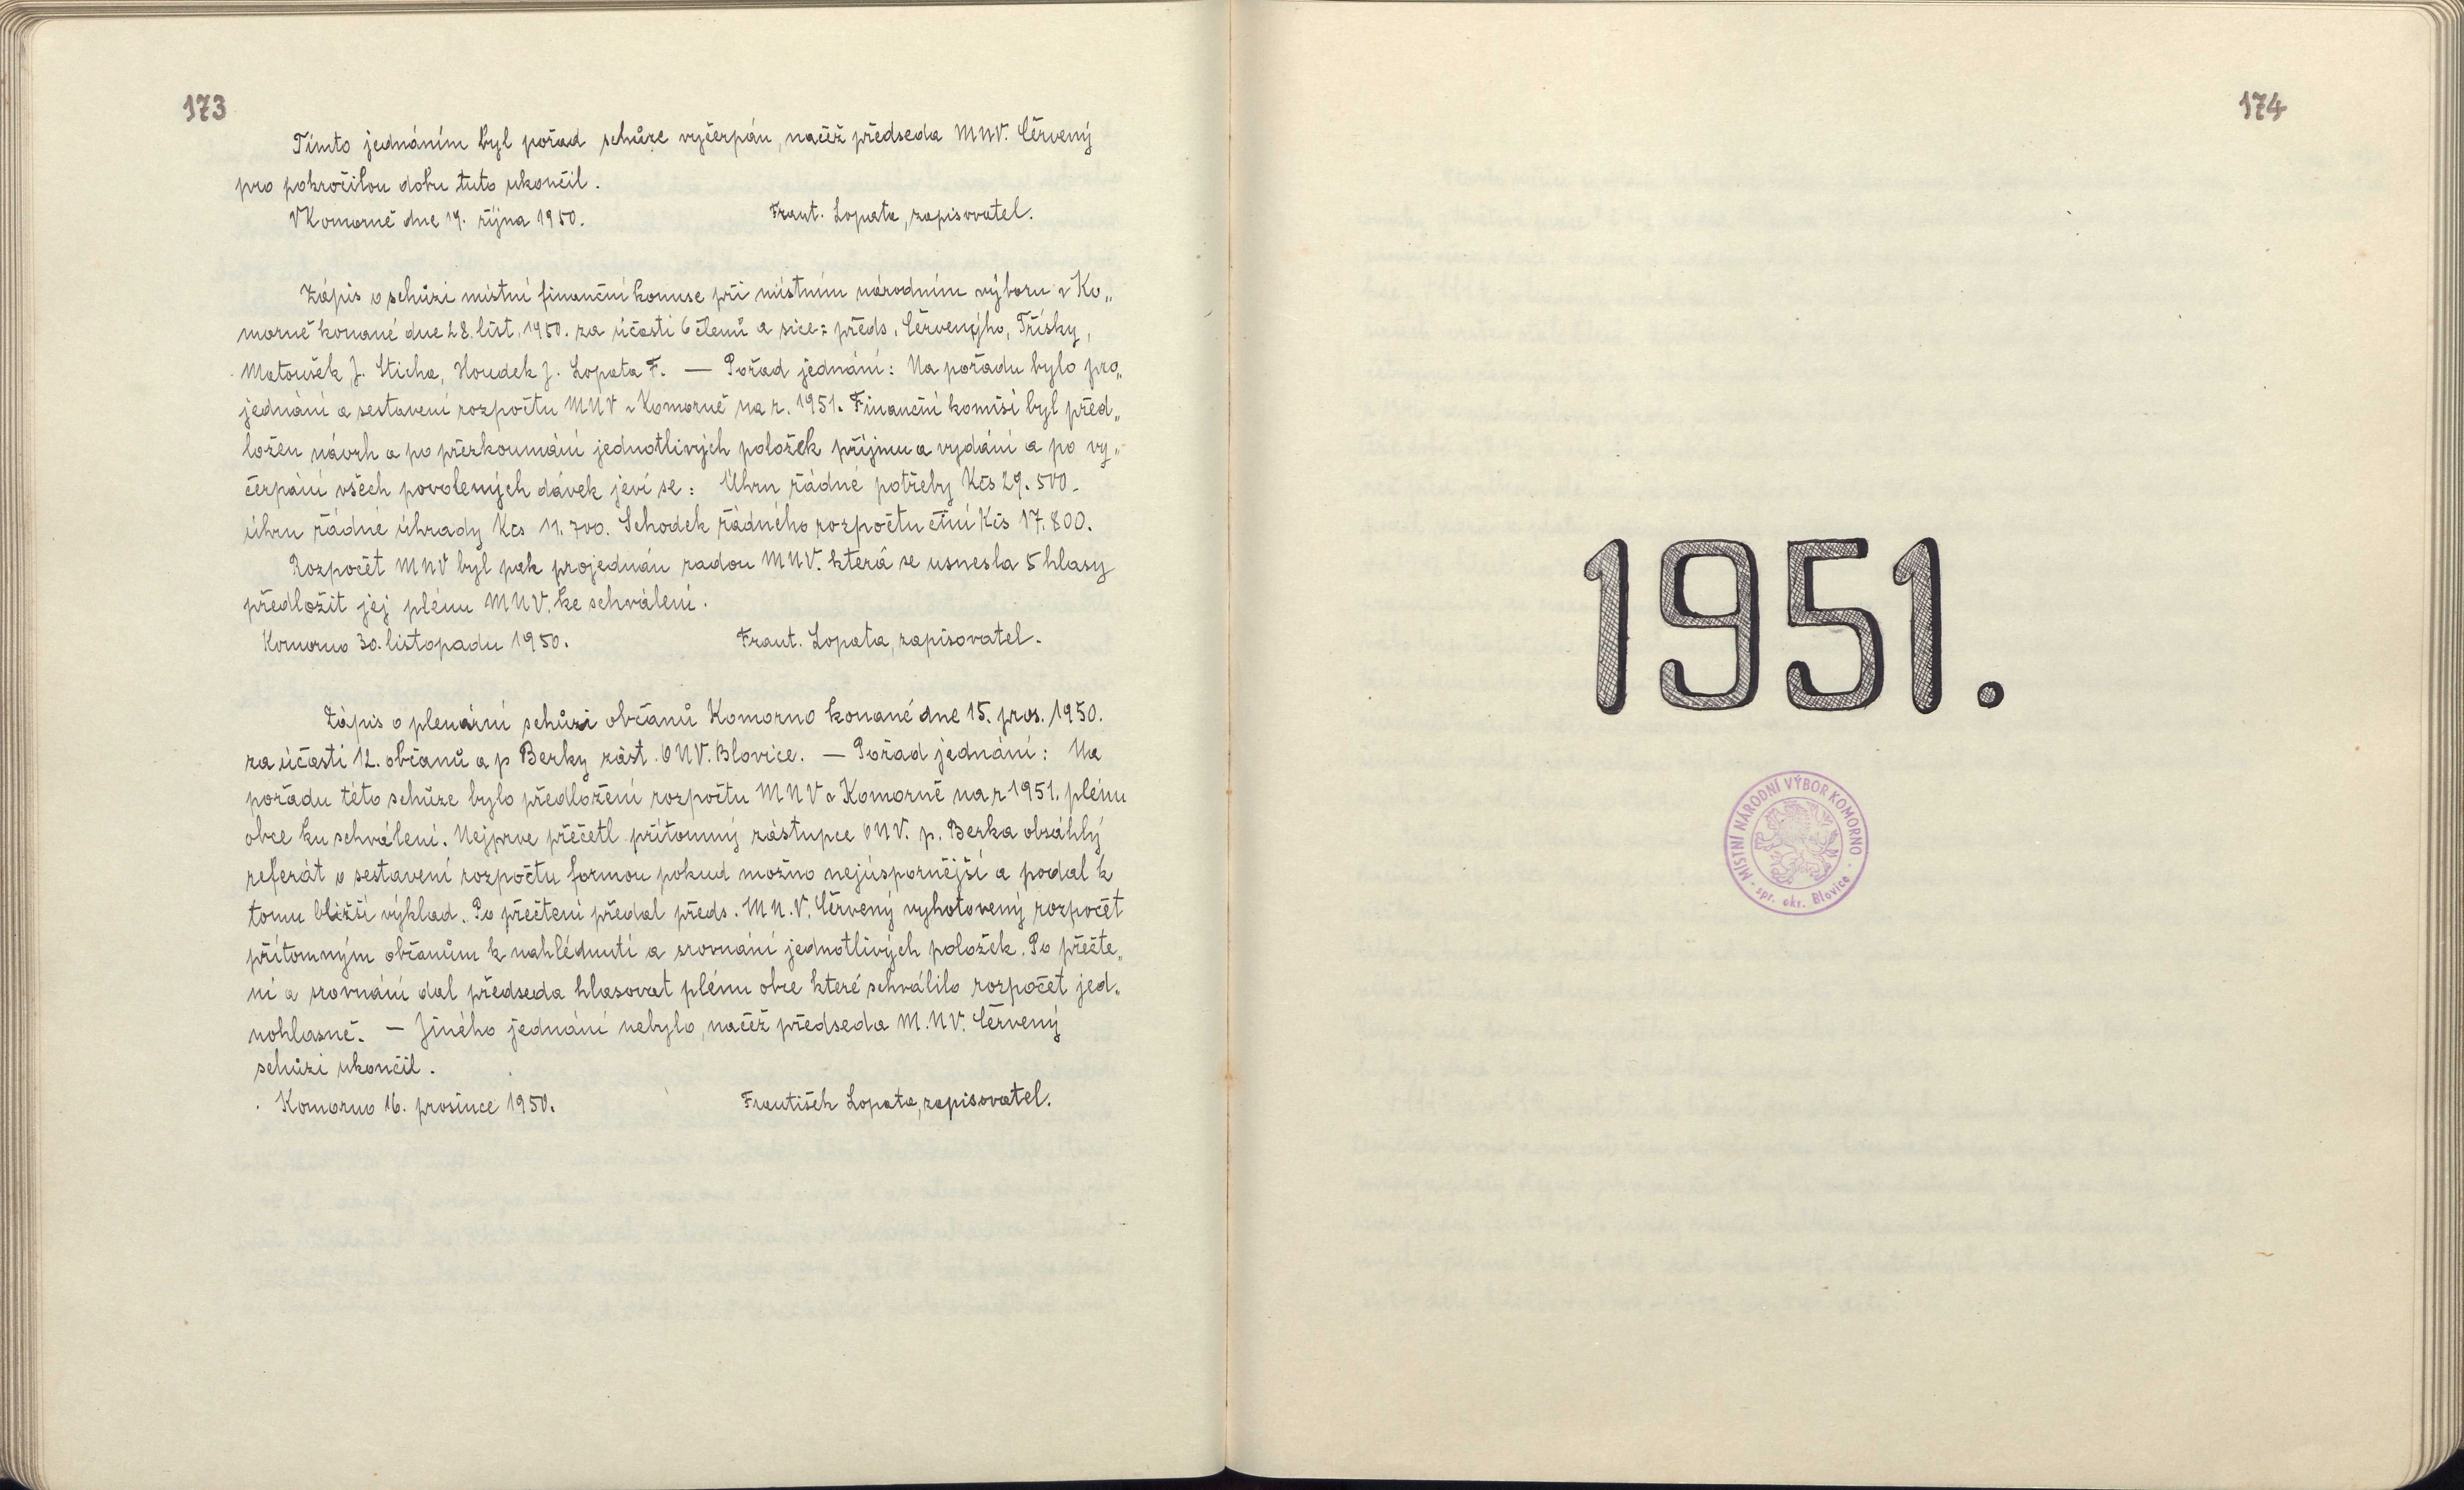 173
Tímto jednáním byl pořad schůze vyčerpán, načež předseda MNV. Červený
pro pokročilou dobu tuto ukončil.
V Komorně dne 19. října 1950. Frant. Lopata, zapisovatel.
Zápis o schůzi místní finanční komise při místním národním výboru v Ko„
morně konané dne 28. list. 1950. za účasti 6 členů a sice: předs. Červenýho, Třísky,
Matoušek J. Sticha, Houdek J. Lopata F. — Pořad jednání: Na pořadu bylo pro„
jednání a sestavení rozpočtu MNV v Komorně na r. 1951. Finanční komisí byl před„
ložen návrh a po přezkoumání jednotlivých položek příjmu a vydání a po vy„
čerpání všech povolených dávek jeví se: Úhrn řádné potřeby Kčs 29.500-
úhrn řádné úhrady Kčs 11.700. Schodek řádného rozpočtu činí Kčs 17.800.
Rozpočet MNV byl pak projednán radou MNV. která se usnesla 5 hlasy
předložit jej plénu MNV. ke schválení.
Komorno 30. listopadu 1950. Frant. Lopata, zapisovatel.
Zápis o plenární schůzi občanů Komorno konané dne 15. pros. 1950.
za účasti 12. občanů a p Berky zást. ONV. Blovice. — Pořad jednání: Na
pořadu této schůze bylo předložení rozpočtu MNV v Komorně na r 1951. plénu
obce ku schválení. Nejprve přečetl přítomný zástupce ONV. p. Berka obsáhlý
referát o sestavení rozpočtu formou pokud možno nejúspornější a podal k
tomu bližší výklad. Po přečtení předal předs. M.N.V. Červený vyhotovený rozpočet
přítomným občanům k nahlédnutí a srovnání jednotlivých položek. Po přečte„
ní a srovnání dal předseda hlasovat plénu obce které schválilo rozpočet jed„
nohlasně. — Jiného jednání nebylo, načež předseda M.NV. Červený
schůzi ukončil.
Komorno 16. prosince 1950. František Lopata, zapisovatel.
174
1951.
MÍSTNÍ NÁRODNÍ VÝBOR KOMORNO
· spr. okr. Blovice ·